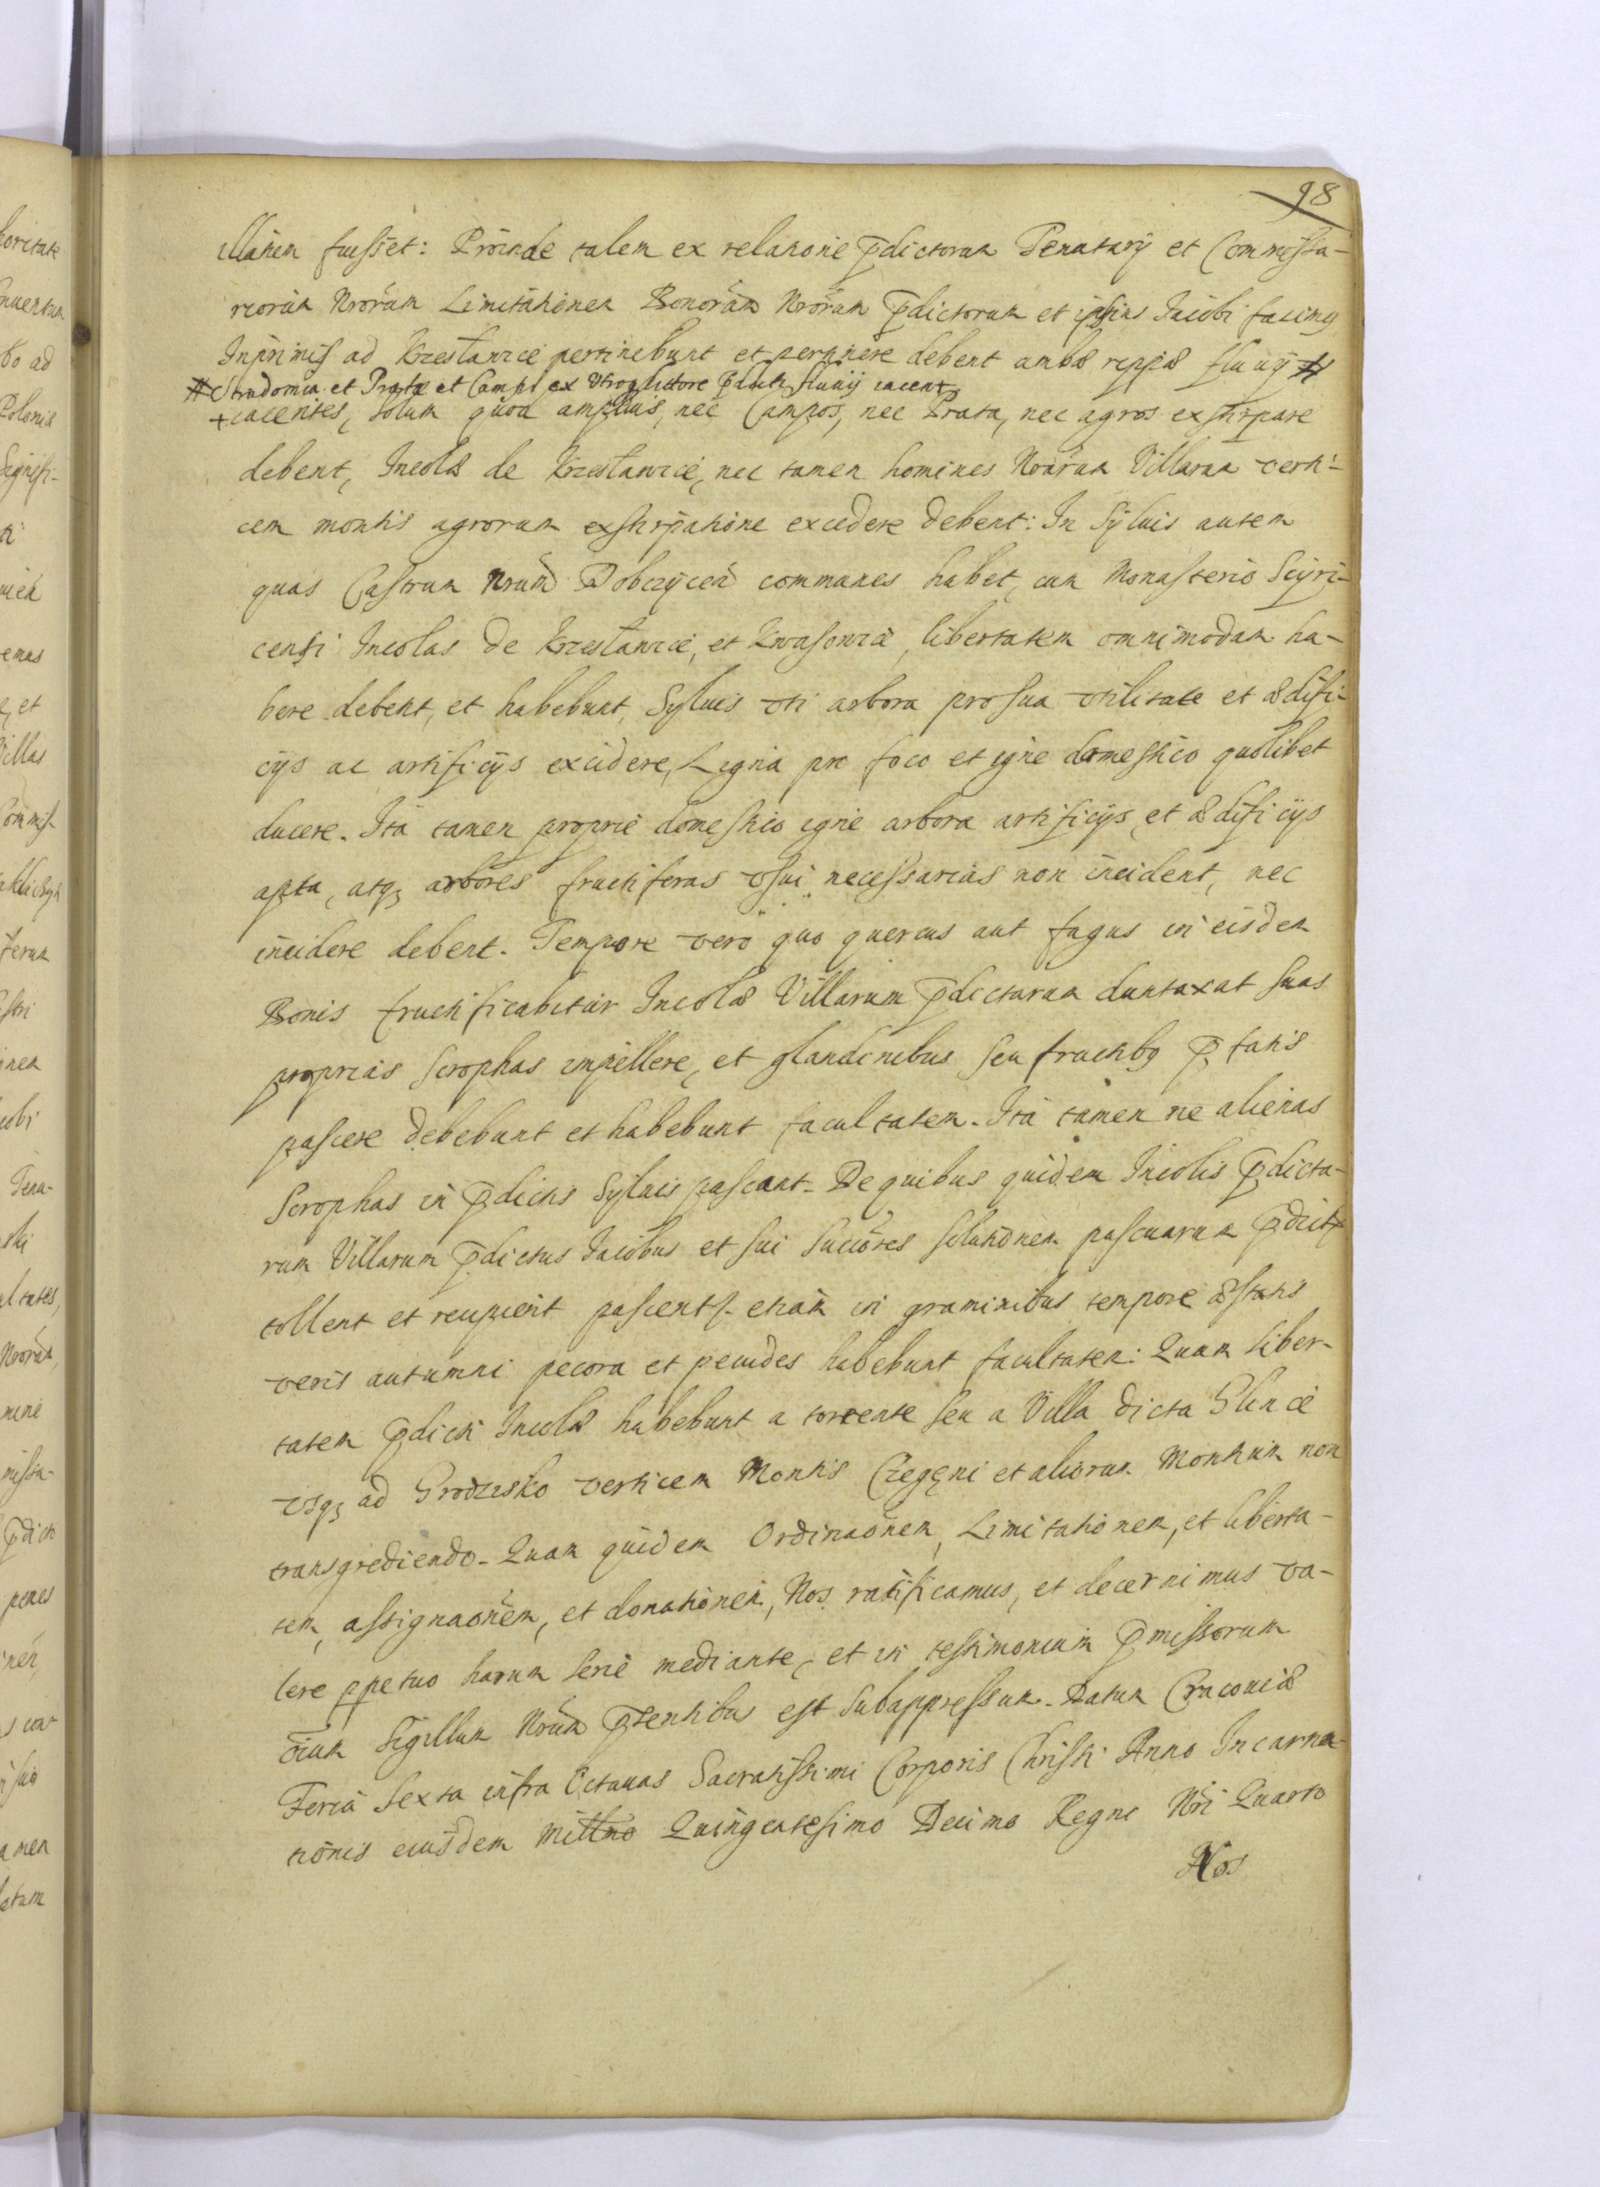 98
illatum fuisset: Proinde talem ex relatione p̄dictorum Tenutarij et Commissa-
riorum Nrõrum Limitationem Bonorum Nrõrum p̄dictorum et ipsius Jacobi facimus
Inprimis ad Krzesławice pertinebunt et pertinere debent ambæ rippæ fluuij #
# Stradomia et Prata et Campi ex vtroq littore p̄dicti fluuij iacent
+ iacentes, solum quod amplius, nec Campos, nec Prata, nec agros exstirpare
debent, Incolæ de Krzesławice, nec tamen homines Nrãrum Villarum verti-
cem montis agrorum exstirpatione excedere debent: In Syluis autem
quas Castrum Nrum Dobczycen̄ communes habet, cum Monasterio Sczyri-
censi Incolas de Krzesławice, et Kwasowice, libertatem omnimodam ha-
bere debent, et habebunt, Syluis vti arbora pro sua vtilitate et ædifi-
cijs ac artificijs excidere, Ligna pro foco et igne domestico quolibet
ducere. Ita tamen proprie domestico igne arbora artificijs et ædificijs
apta, atq; arbores fructiferas vsui necessarias non incident, nec
incidere debent. Tempore vero quo quercus aut fagus in eisdem
Bonis fructificabitur Incolæ Villarum p̄dictarum duntaxat suas
proprias scrophas impellere, et glandinibus seu fructibus p̄fatis
pascere debebunt et habebunt facultatem. Ita tamen ne alienas
Scrophas in p̄dictis Syluis pascant. De quibus quidem Incolis p̄dicta-
rum Villarum p̄dictus Jacobus et sui Succõres solutionem pascuarum p̄dict
tollent et recipient pascent etiam in graminibus tempore æstatis
veris autumni pecora et pecudes habebunt facultatem: Quam liber-
tatem p̄dicti Incolæ habebunt a torrente seu a Villa dicta Glince
vsq; ad Grodzisko verticem Montis Czegęni et aliorum Montium non
transgrediendo. Quam quidem Ordinaõnem, Limitationem, et liberta-
tem, assignaõnem, et donationem, Nos ratificamus, et decernimus va-
lere ppetuo harum serie mediante, et in testimonium p̄missorum
oium Sigillum Nrum p̄sentibus est subappressum. Datum Cracouiæ
Feria Sexta infra Octauas Sacratissimi Corporis Christi Anno Incarna-
tionis eiusdem Millmo Quingentesimo Decimo Regni Nri Quarto
Nos